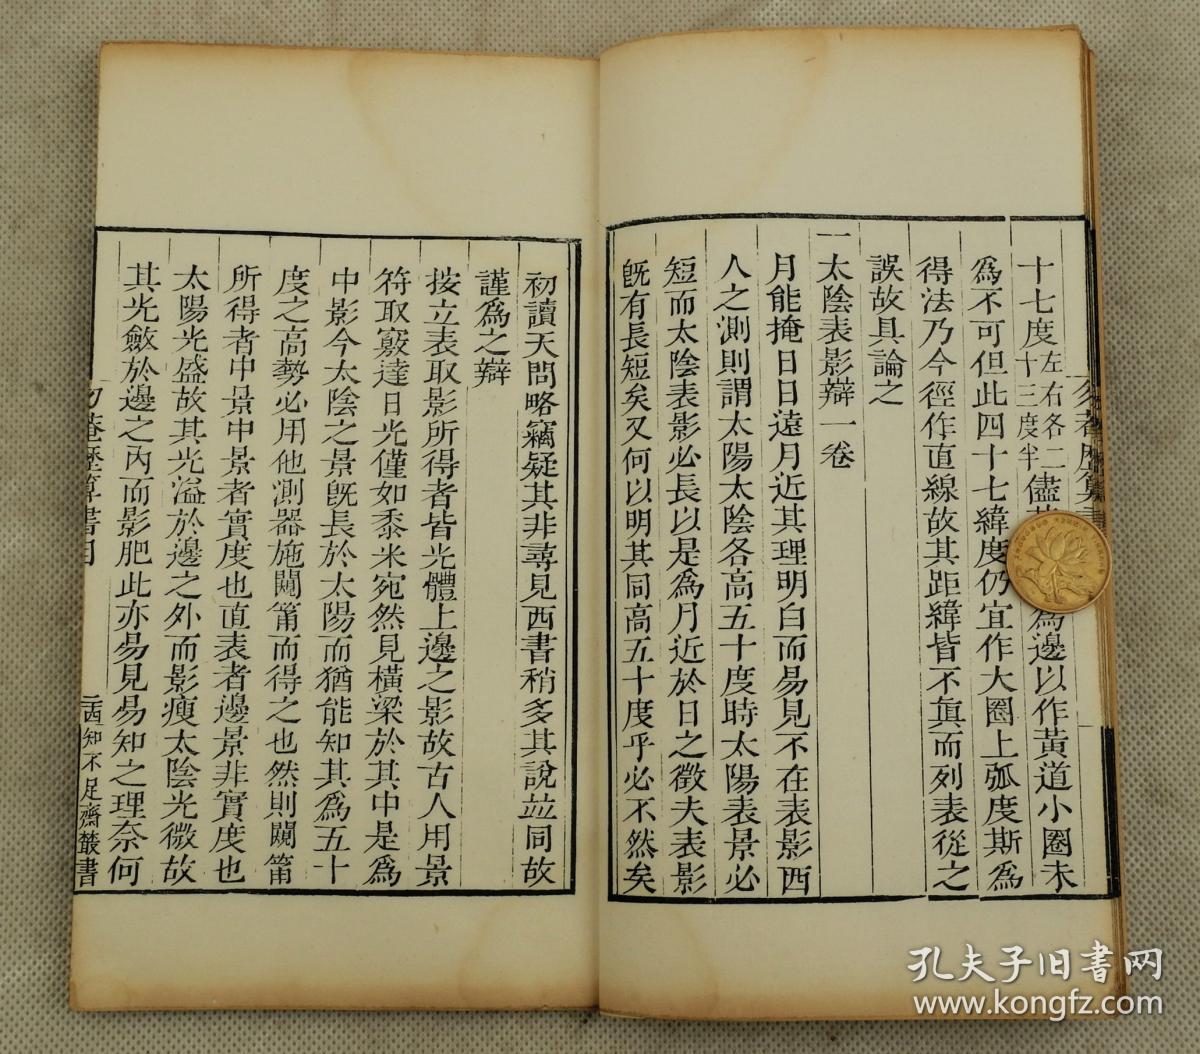 十七度左右各二十三度半儘 爲邊以作黃道小圈未
爲不可但此四十七緯度仍宜作大圈上弧度斯爲
得法乃今徑作直線故其距緯皆不眞而列表從之
誤故具論之
一太陰表影辯一卷
月能掩日日遠月近其理明白而易見不在表影西
人之測則謂太陽太陰各高五十度時太陽表景必
短而太陰表影必長以是爲月近於日之徵夫表影
旣有長短矣又何以明其同高五十度乎必不然矣
初讀天問略竊疑其非尋見西書稍多其說竝同故
謹爲之辯
按立表取影所得者皆光體上邊之影故古人用景
符取竅達日光僅如黍米宛然見橫梁於其中是爲
中影今太陰之景旣長於太陽而猶能知其爲五十
度之高勢必用他測器施闚筩而得之也然則闚筩
所得者中景中景者實度也直表者邊景非實度也
太陽光盛故其光溢於邊之外而影瘦太陰光微故
其光斂於邊之內而影肥此亦易見易知之理奈何
勿菴歷算書目
二西知不足齋叢書
孔夫子旧書网
www.kongfz.com